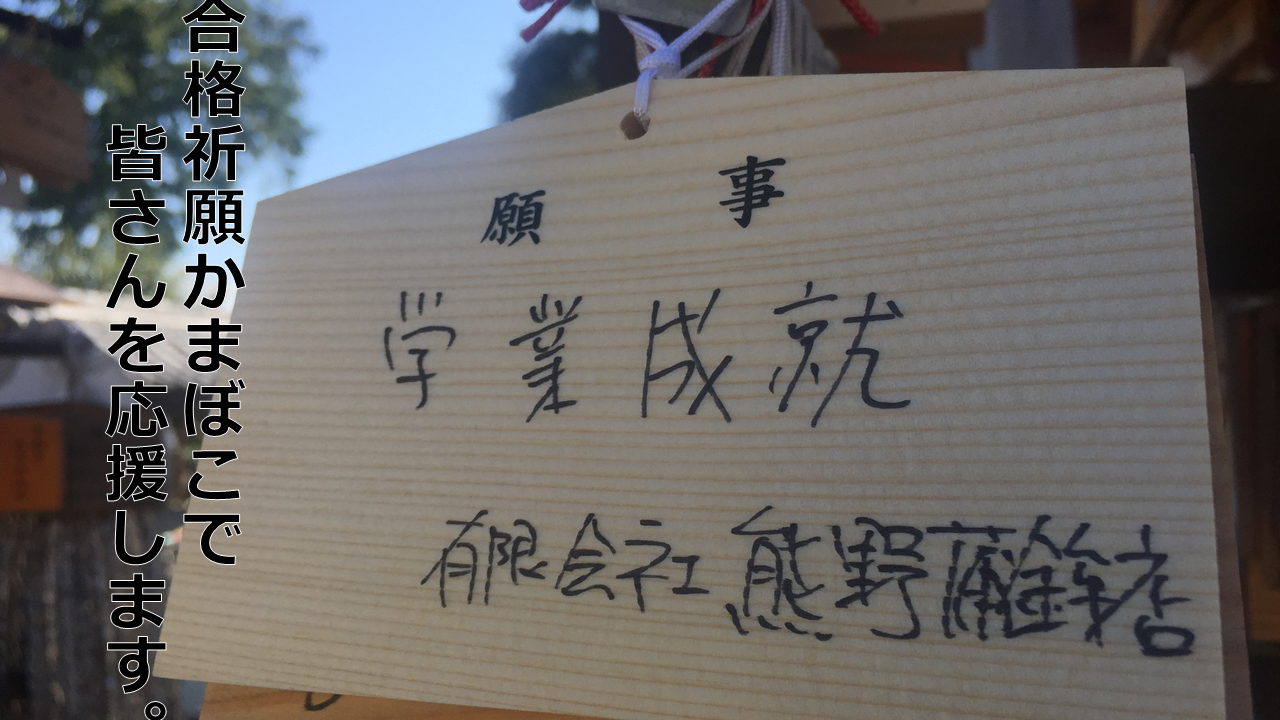 合格祈願かまぼこで
皆さんを応援します。
願 事
学業成就
有限会社 熊野蒲鉾店